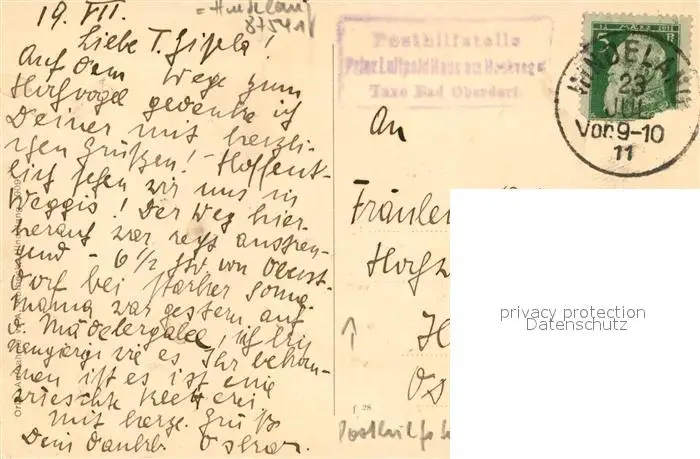 19. VII.
= Hindelang
87541
Liebe T. Gisela!
Auf dem Wege zum
Hochvogel gedenke ich
Deiner mit herzli-
chen Grüßen! Hoffent-
lich sehen wir uns in
Weggis! Der Weg hier-
herauf war sehr anstren-
gend - 6 1/2 Std. von Oberst-
dorf bei starker Sonne.
Mama war gestern auf
d. Mädelegabel, ich bin
neugierig wie es Ihr bekom-
men ist es ist eine
Kletterei
Mit herzl. Gruß
Dein dankb. Oskar.
Posthilfstelle
Prinz Luitpold Haus am Hochvogel
Taxe Bad Oberdorf.
5
HINDELANG
23
JUL
Vor. 9-10
11
An
Fräulein
privacy protection
Datenschutz
f. 28